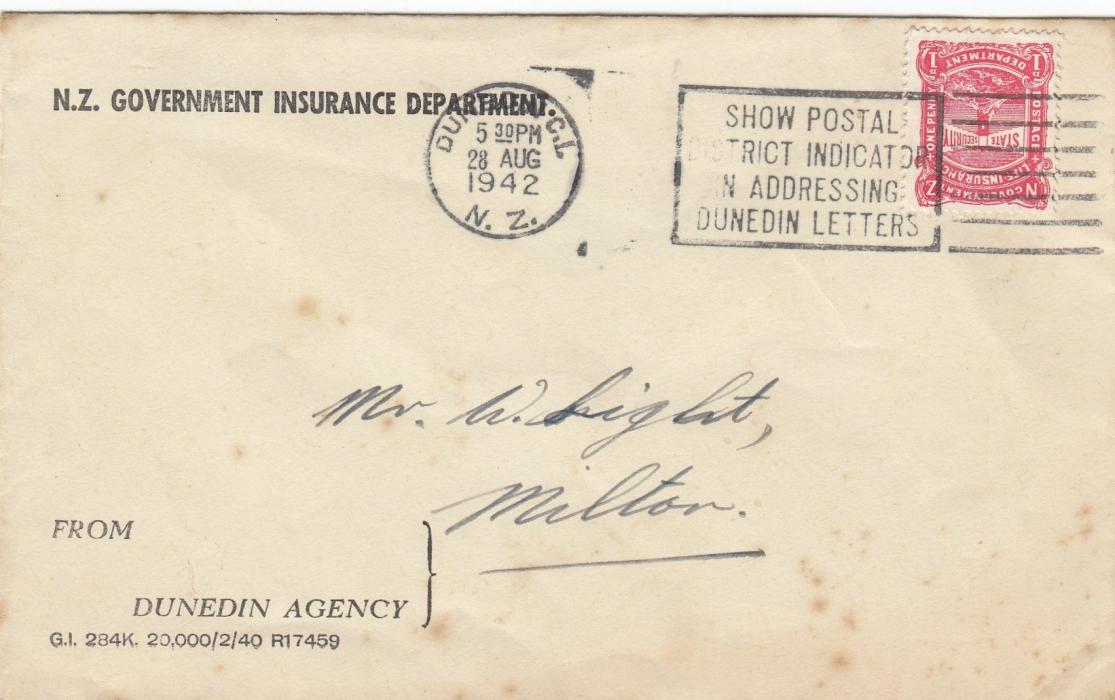 N.Z. GOVERNMENT INSURANCE DEPARTMENT.
DUNEDIN C.1.
5 30PM
28 AUG
1942
N. Z.
SHOW POSTAL
DISTRICT INDICATOR
IN ADDRESSING
DUNEDIN LETTERS
N GOVERNMENT Z
LIFE INSURANCE
STATE SECURITY
ONE PENNY
POSTAGE
1D DEPARTMENT 1D
Mr. W. Light,
Milton.
FROM
DUNEDIN AGENCY
G.I. 284K. 20,000/2/40 R17459